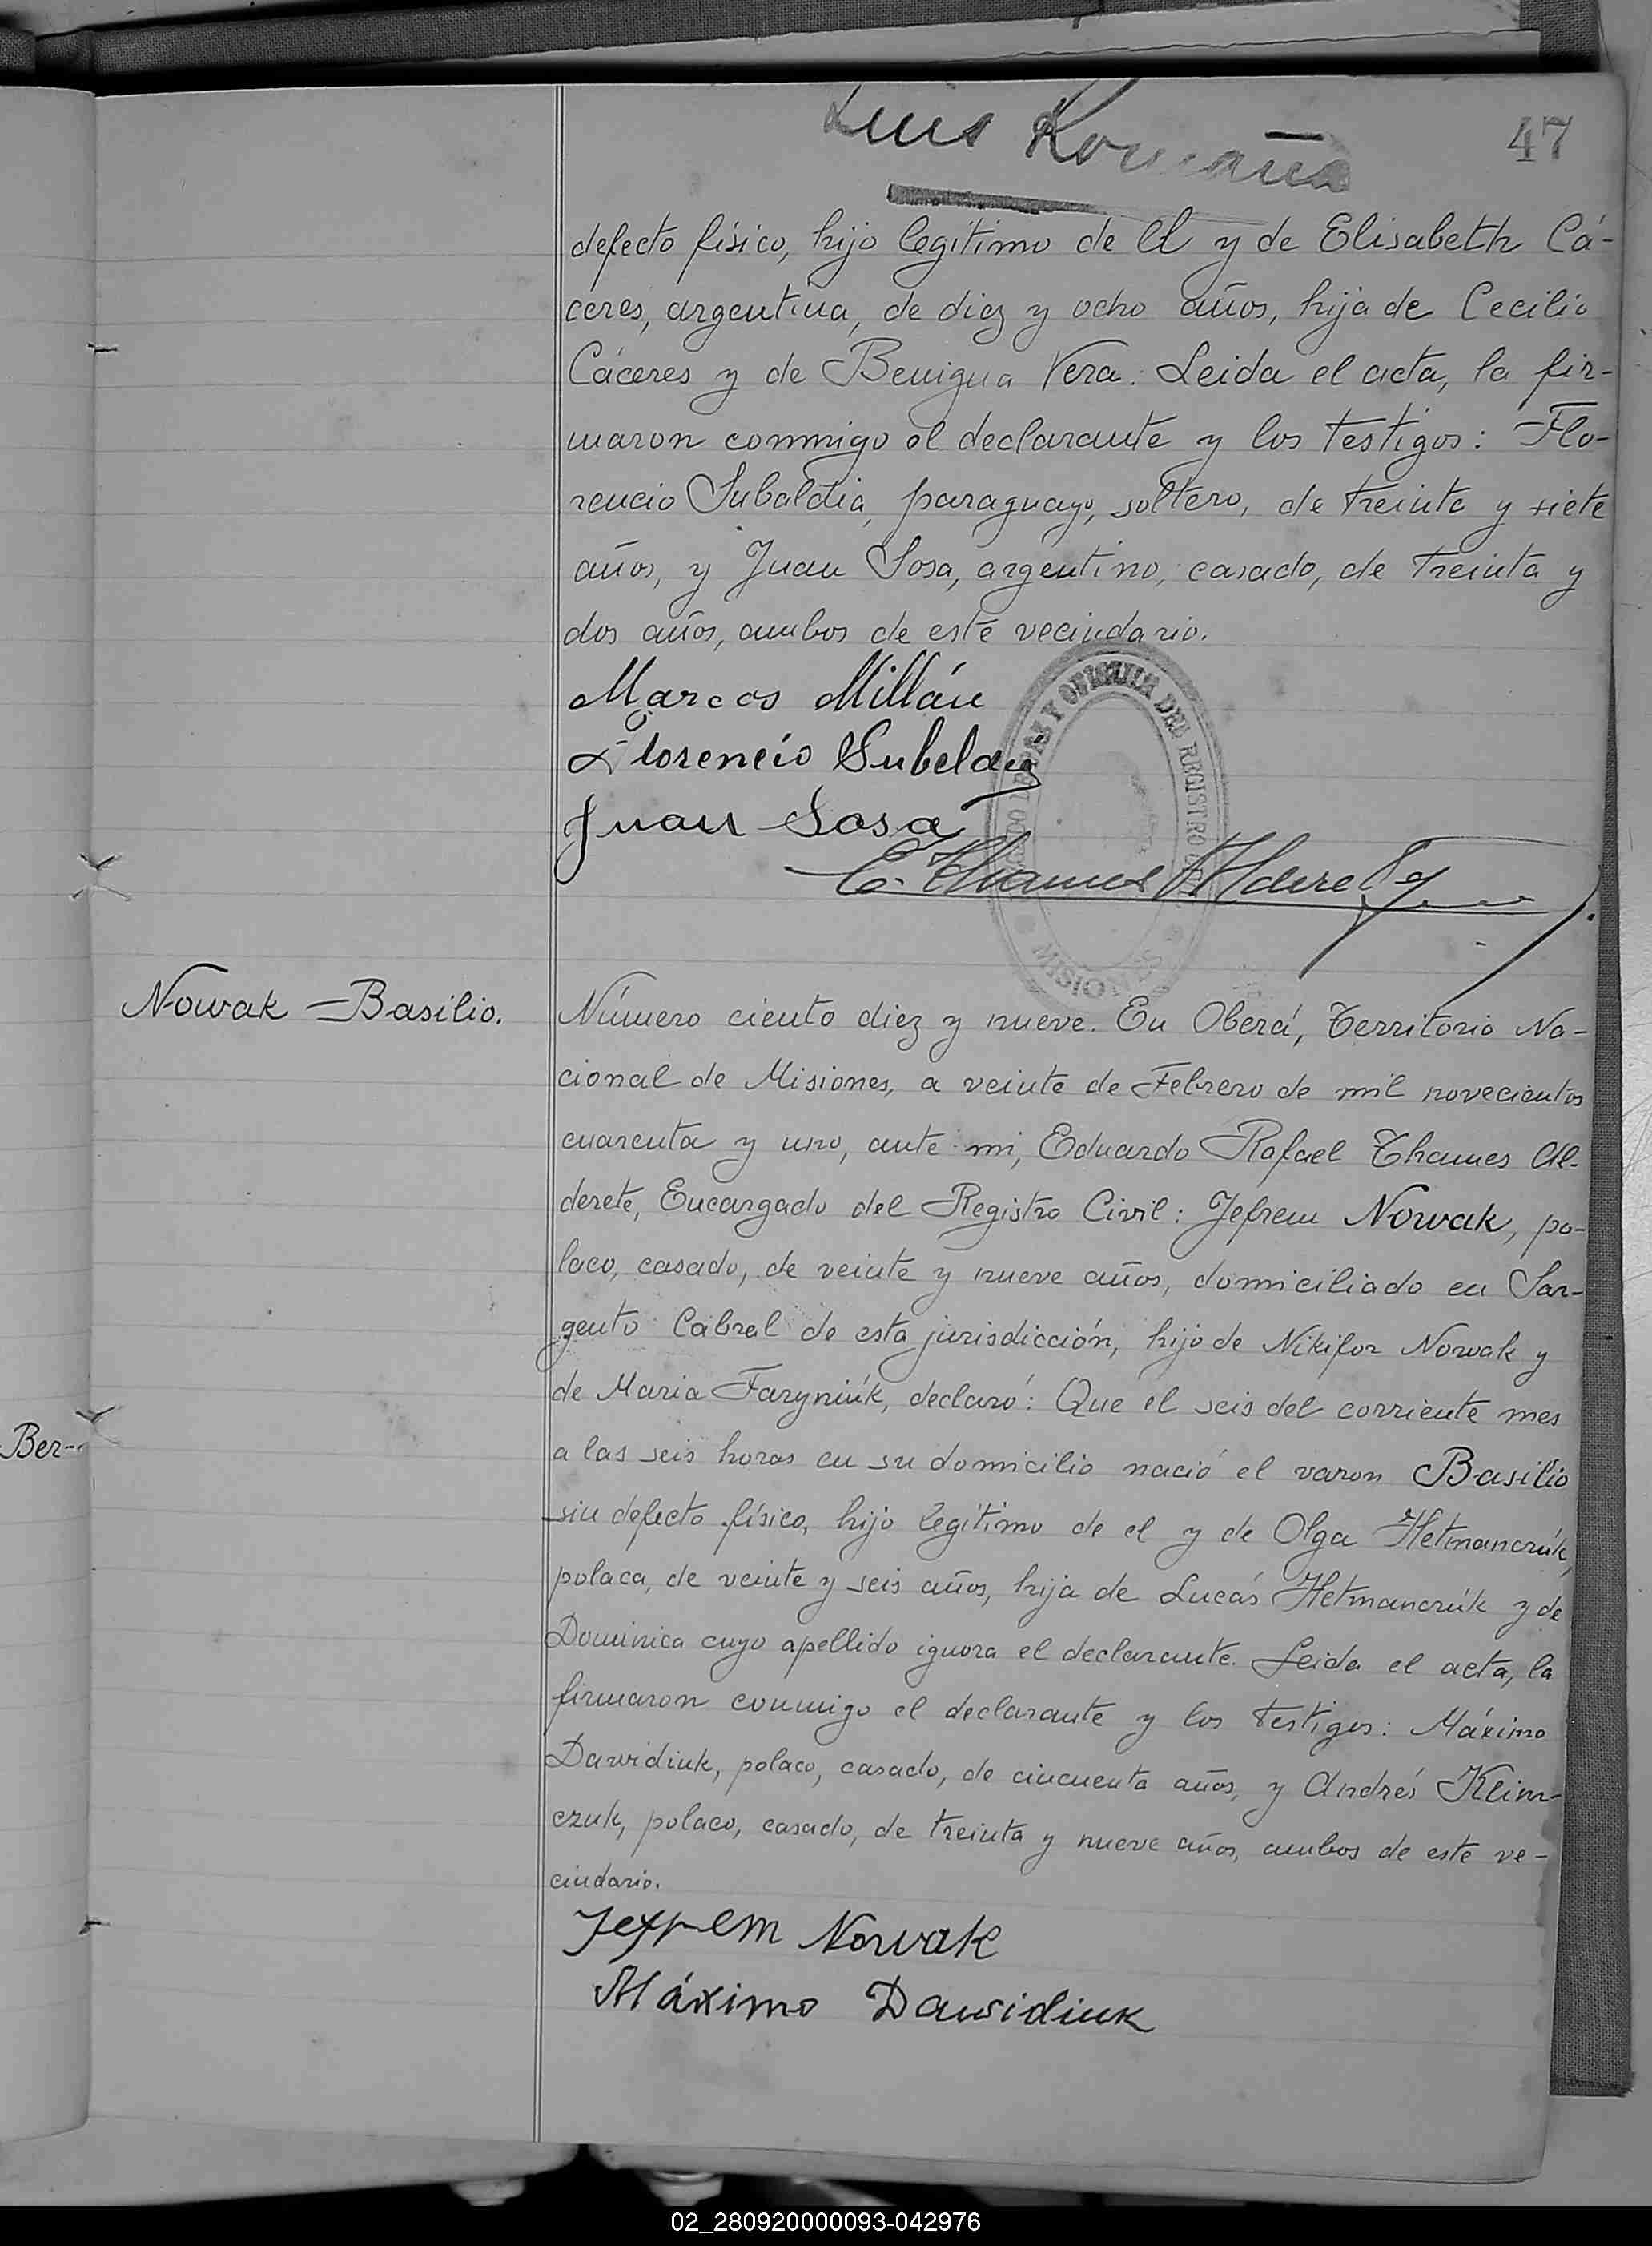 Luis Romaña
47
defecto físico, hijo legítimo de él y de Elisabeth Cá-
ceres, argentina, de diez y ocho años, hija de Cecilio
Cáceres y de Benigna Vera. Leida el acta, la fir-
maron conmigo el declarante y los testigos: Flo-
rencio Subaldia, paraguayo, soltero, de treinta y siete
años, y Juan Sosa, argentino, casado, de treinta y
dos años, ambos de este vecindario.
Marcos Millán
Florencio Subeldia
Juan Sosa
E. Thames Alderete
DEL REGISTRO
MISIONES
Nowak Basilio.
Número ciento diez y nueve. En Oberá, Territorio Na-
cional de Misiones, a veinte de Febrero de mil novecientos
cuarenta y uno, ante mi, Eduardo Rafael Thames Al-
derete, Encargado del Registro Civil: Jefrem Nowak, po-
laco, casado, de veinte y nueve años, domiciliado en Sar-
gento Cabral de esta jurisdicción, hijo de Nikifor Nowak y
de Maria Faryniúk, declaró: Que el seis del corriente mes
Ber-
a las seis horas en su domicilio nació el varon Basilio
sin defecto físico, hijo legítimo de el y de Olga Hetmanczúk,
polaca, de veinte y seis años, hija de Lucás Hetmanczúk y de
Dominica cuyo apellido ignora el declarante. Leida el acta, la
firmaron conmigo el declarante y los testigos: Máximo
Dawidiuk, polaco, casado, de cincuenta años, y Andrés Klim-
czuk, polaco, casado, de treinta y nueve años, ambos de este ve-
cindario.
Jefrem Nowak
Máximo Dawidiuk
02_280920000093-042976